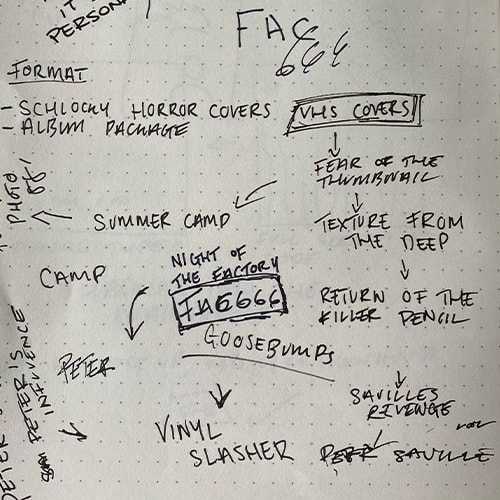 IT
PERSONA
FAC
666
FORMAT
- SCHLOCKY HORROR COVERS
- ALBUM PACKAGE
VHS COVERS
FEAR OF THE
THUMBNAIL
TEXTURE FROM
THE DEEP
RETURN OF THE
KILLER PENCIL
SAVILLES
REVENGE
SAVILLE
SUMMER CAMP
PHOTO
CAMP
NIGHT OF
THE FACTORY
FAC666
GOOSEBUMPS
PETER
VINYL
SLASHER
PETER IS
INFLUENCE
PETER